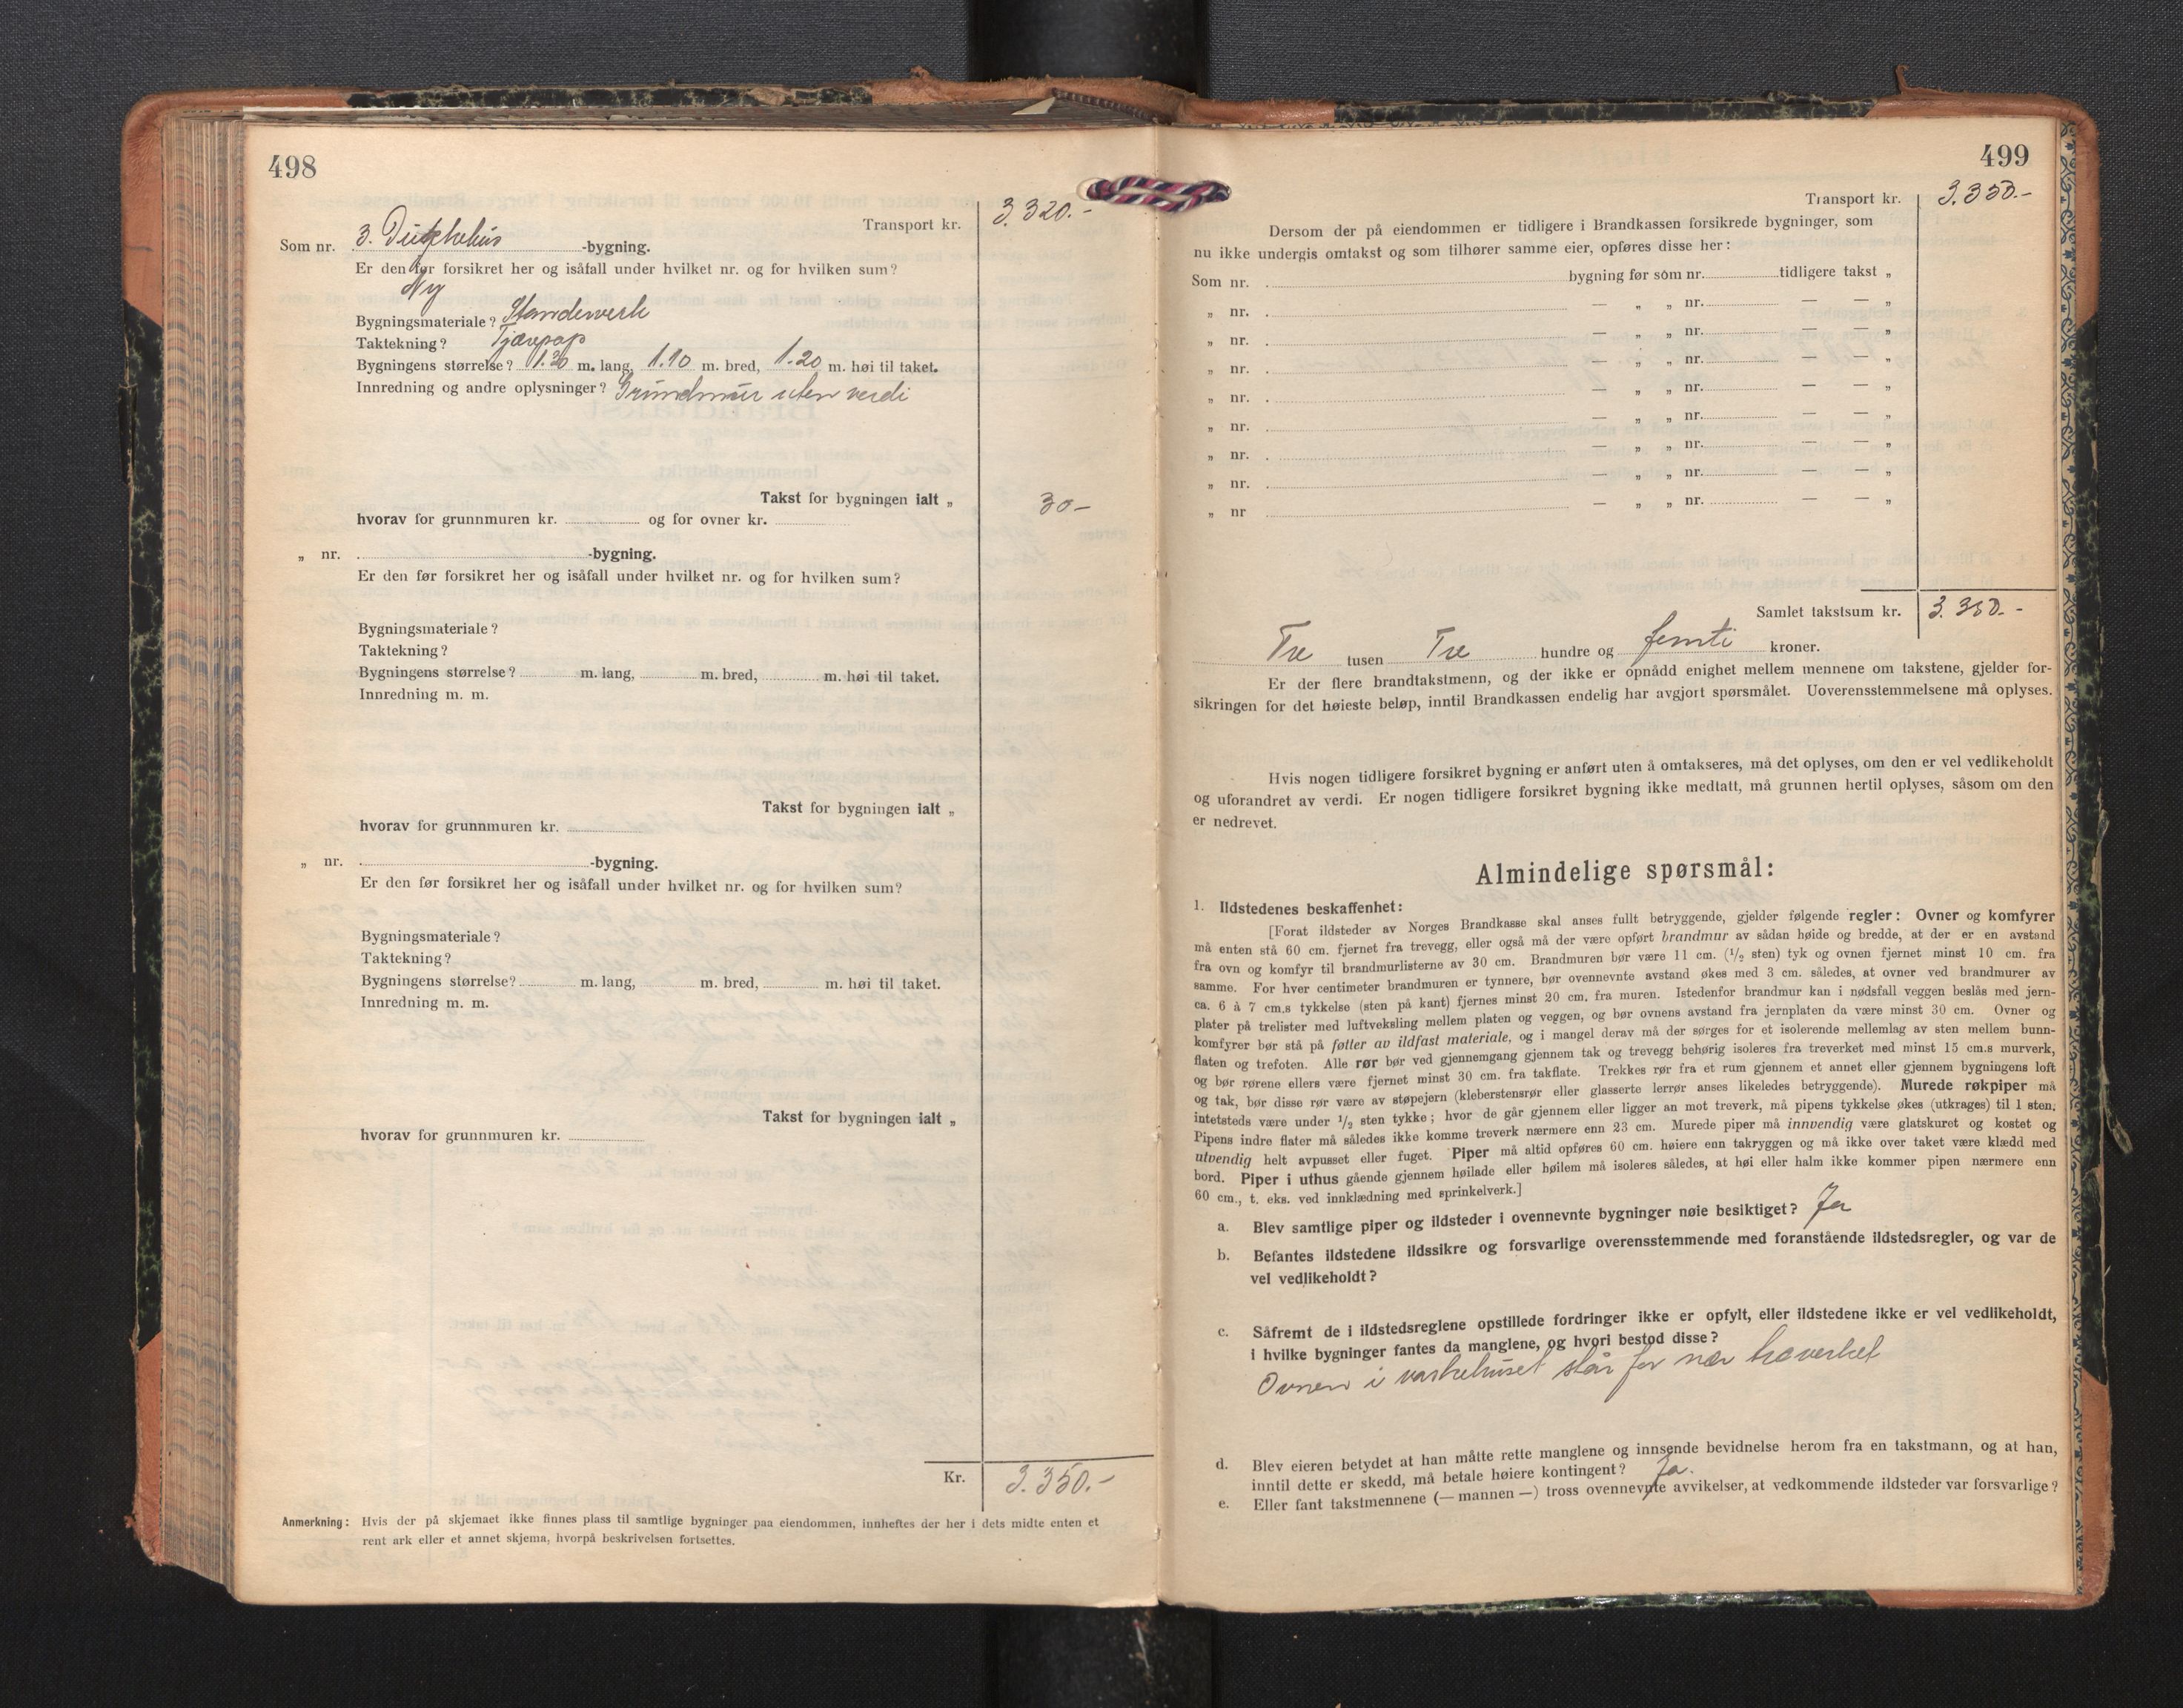 498
Transport kr. 3.320.-
Som nr. 3. -bygning.
Er den før forsikret her og isåfall under hvilket nr. og for hvilken sum?
Ny
Bygningsmateriale? Standerverk
Taktekning? Tjærepap
Bygningens størrelse? 1.20 m. lang, 1.10 m. bred, 1.20 m. høi til taket.
Innredning og andre oplysninger? Grundmur uten verdi
Takst for bygningen ialt „ 30-
hvorav for grunnmuren kr. og for ovner kr.
„ nr. -bygning.
Er den før forsikret her og isåfall under hvilket nr. og for hvilken sum?
Bygningsmateriale?
Taktekning?
Bygningens størrelse? m. lang, m. bred, m. høi til taket.
Innredning m. m.
Takst for bygningen ialt „
hvorav for grunnmuren kr.
„ nr. -bygning.
Er den før forsikret her og isåfall under hvilket nr. og for hvilken sum?
Bygningsmateriale?
Taktekning?
Bygningens størrelse? m. lang, m. bred, m. høi til taket.
Innredning m. m.
Takst for bygningen ialt „
hvorav for grunnmuren kr.
Kr. 3.350.-
Anmerkning: Hvis der på skjemaet ikke finnes plass til samtlige bygninger paa eiendommen, innheftes der her i dets midte enten et
rent ark eller et annet skjema, hvorpå beskrivelsen fortsettes.
499
Transport kr. 3.350.-
Dersom der på eiendommen er tidligere i Brandkassen forsikrede bygninger, som
nu ikke undergis omtakst og som tilhører samme eier, opføres disse her:
Som nr. bygning før som nr. tidligere takst „
„ nr. — „ „ nr. — — „
„ nr. — „ „ nr. — — „
„ nr. — „ „ nr. — — „
„ nr. — „ „ nr. — — „
„ nr. — „ „ nr. — — „
„ nr. — „ „ nr. — — „
„ nr. — „ „ nr. — — „
„ nr — „ „ nr. — — „
Samlet takstsum kr. 3.350.-
Tre tusen Tre hundre og femti kroner.
Er der flere brandtakstmenn, og der ikke er opnådd enighet mellem mennene om takstene, gjelder for-
sikringen for det høieste beløp, inntil Brandkassen endelig har avgjort spørsmålet. Uoverensstemmelsene må oplyses.
Hvis nogen tidligere forsikret bygning er anført uten å omtakseres, må det oplyses, om den er vel vedlikeholdt
og uforandret av verdi. Er nogen tidligere forsikret bygning ikke medtatt, må grunnen hertil oplyses, såsom om den
er nedrevet.
Almindelige spørsmål:
1. Ildstedenes beskaffenhet:
[Forat ildsteder av Norges Brandkasse skal anses fullt betryggende, gjelder følgende regler: Ovner og komfyrer
må enten stå 60 cm. fjernet fra trevegg, eller også må der være opført brandmur av sådan høide og bredde, at der er en avstand
fra ovn og komfyr til brandmurlisterne av 30 cm. Brandmuren bør være 11 cm. (1/2 sten) tyk og ovnen fjernet minst 10 cm. fra
samme. For hver centimeter brandmuren er tynnere, bør ovennevnte avstand økes med 3 cm. således, at ovner ved brandmurer av
ca. 6 à 7 cm.s tykkelse (sten på kant) fjernes minst 20 cm. fra muren. Istedenfor brandmur kan i nødsfall veggen beslås med jern-
plater på trelister med luftveksling mellem platen og veggen, og bør ovnens avstand fra jernplaten da være minst 30 cm. Ovner og
komfyrer bør stå på føtter av ildfast materiale, og i mangel derav må der sørges for et isolerende mellemlag av sten mellem bunn-
flaten og trefoten. Alle rør bør ved gjennemgang gjennem tak og trevegg behørig isoleres fra treverket med minst 15 cm.s murverk,
og bør rørene ellers være fjernet minst 30 cm. fra takflate. Trekkes rør fra et rum gjennem et annet eller gjennem bygningens loft
og tak, bør disse rør være av støpejern (kleberstensrør eller glasserte lerrør anses likeledes betryggende). Murede røkpiper må
intetsteds være under 1/2 sten tykke; hvor de går gjennem eller ligger an mot treverk, må pipens tykkelse økes (utkrages) til 1 sten.
Pipens indre flater må således ikke komme treverk nærmere enn 23 cm. Murede piper må innvendig være glatskuret og kostet og
utvendig helt avpusset eller fuget. Piper må altid opføres 60 cm. høiere enn takryggen og må ikke over taket være klædd med
bord. Piper i uthus gående gjennem høilade eller høilem må isoleres således, at høi eller halm ikke kommer pipen nærmere enn
60 cm., t. eks. ved innklædning med sprinkelverk.]
a. Blev samtlige piper og ildsteder i ovennevnte bygninger nøie besiktiget? Ja
b. Befantes ildstedene ildssikre og forsvarlige overensstemmende med foranstående ildstedsregler, og var de
vel vedlikeholdt?
c. Såfremt de i ildstedsreglene opstillede fordringer ikke er opfylt, eller ildstedene ikke er vel vedlikeholdt,
i hvilke bygninger fantes da manglene, og hvori bestod disse?
Ovnen i vaskehuset står for nær træverket
d. Blev eieren betydet at han måtte rette manglene og innsende bevidnelse herom fra en takstmann, og at han,
inntil dette er skedd, må betale høiere kontingent? Ja.
e. Eller fant takstmennene (— mannen —) tross ovennevnte avvikelser, at vedkommende ildsteder var forsvarlige?